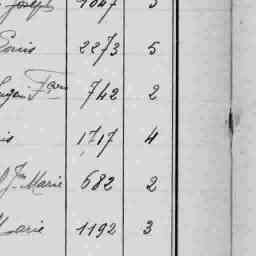 Joseph 1047 5
Louis 2273 5
742 2
is 1717 4
Jn Marie 682 2
Marie 1192 3